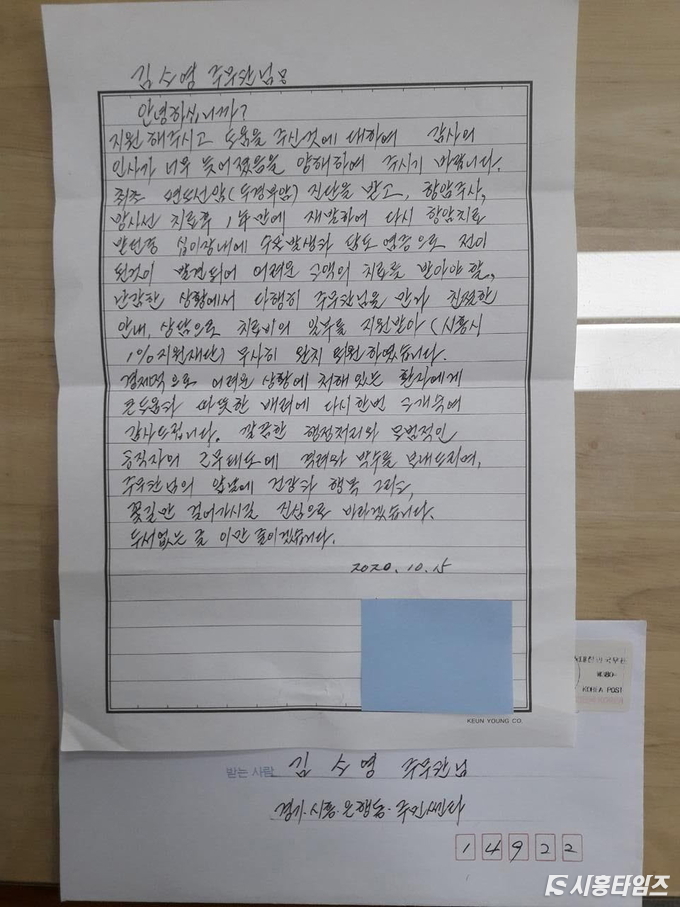 김소영 주무관님 
안녕하십니까?
지원 해주시고 도움을 주신것에 대하여 감사의
인사가 너무 늦어졌음을 양해하여 주시기 바랍니다.
최초 편도선암(두경부암) 진단을 받고, 항암주사,
방사선 치료후 1년만에 재발하여 다시 항암치료
받던중 십이장내에 발생과 담도 염증으로 전이
된것이 발견되어 어려운 수액의 치료를 받아야 할,
난감한 상황에서 다행히 주무관님을 만나 친절한
안내, 상담으로 치료비의 일부를 지원받아 (시흥시
1%지원재단) 무사히 완치 퇴원하였습니다.
경제적으로 어려운 상황에 처해있는 환자에게
큰도움과 따뜻한 배려에 다시한번 고개숙여
감사드립니다. 깔끔한 행정처리와 모범적인
공직자의 근무태도에 격려와 박수를 보내드리며,
주무관님의 앞날에 건강과 행복 그리고,
꽃길만 걸어가시길 진심으로 바라겠습니다.
두서없는 글 이만 줄이겠습니다.
2020.10.15
KEUN YOUNG CO.
KOREA POST
받는 사람 김소영 주무관님
경기·시흥·은행동·주민쎈타
14922
시흥타임즈